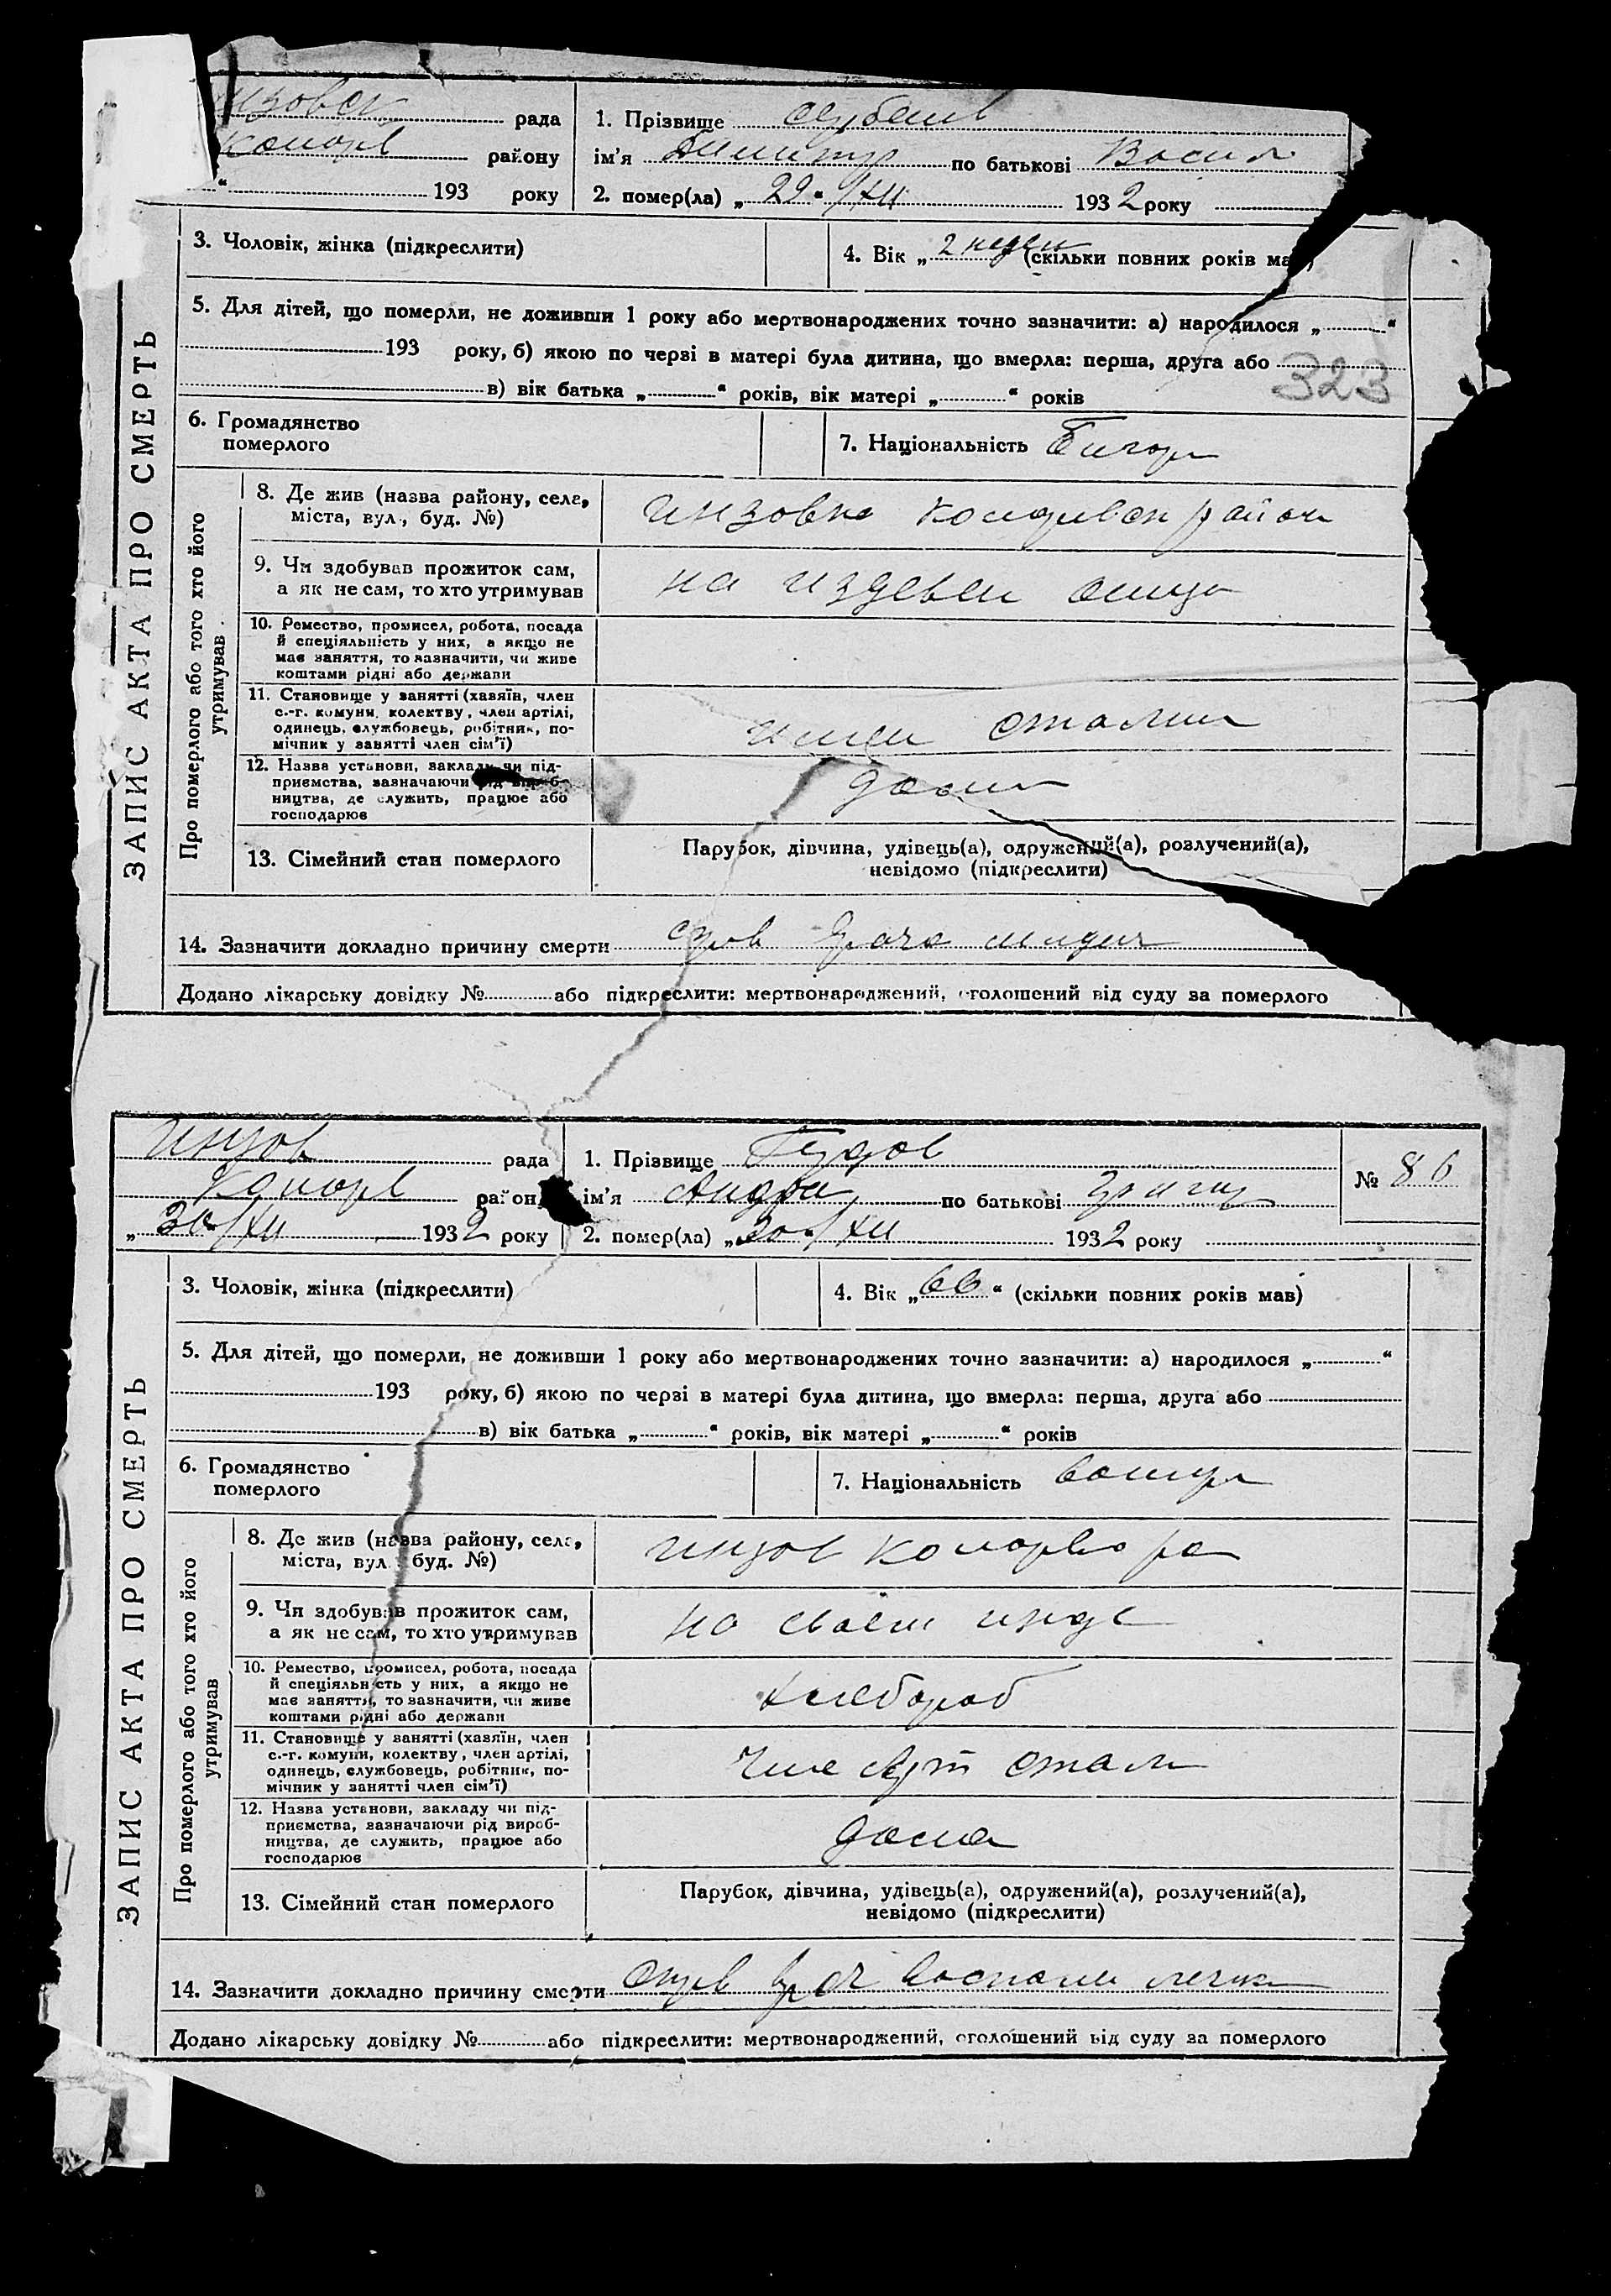 рада
району
" 193 року
1. Прізвище
ім'я по батькові Васил
2. помер(ла) „ 29 " /XII 1932 року
3. Чоловік, жінка (підкреслити)
4. Вік „ 2 недели (скільки повних років мав)
5. Для дітей, що померли, не доживши 1 року або мертвонароджених точно зазначити: а) народилося „ "
193 року, б) якою по черзі в матері була дитина, що вмерла: перша, друга або
323
в) вік батька „ " років, вік матері „ " років
6. Громадянство
померлого
7. Національність
ЗАПИС АКТА ПРО СМЕРТЬ
Про померлого або того хто його
утримував
8. Де жив (назва району, села,
міста, вул., буд. №)
Инзовка район
9. Чи здобував прожиток сам,
а як не сам, то хто утримував
на отца
10. Ремество, промисел, робота, посада
й спеціяльність у них, а якщо не
має заняття, то зазначити, чи живе
коштами рідні або держави
11. Становище у занятті (хазяїн, член
с.-г. комуни, колектву, член артілі,
одинець, службовець, робітник, по-
мічник у занятті член сім'ї)
12. Назва установи, закладу чи під-
приємства, зазначаючи рід вироб-
ництва, де служить, працює або
господарює
дома
13. Сімейний стан померлого
Парубок, дівчина, удівець(а), одружений(а), розлучений(а),
невідомо (підкреслити)
14. Зазначити докладно причину смерти
Додано лікарську довідку № або підкреслити: мертвонароджений, оголошений від суду за померлого
Инзов рада
район
„ 30 " /XII 1932 року
1. Прізвище Гудов
ім'я Андрей по батькові
№ 86
2. помер(ла) „ 30 " /XII 1932 року
3. Чоловік, жінка (підкреслити)
4. Вік „ 66 " (скільки повних років мав)
5. Для дітей, що померли, не доживши 1 року або мертвонароджених точно зазначити: а) народилося „ "
193 року, б) якою по черзі в матері була дитина, що вмерла: перша, друга або
в) вік батька „ " років, вік матері „ " років
6. Громадянство
померлого
7. Національність
ЗАПИС АКТА ПРО СМЕРТЬ
Про померлого або того хто його
утримував
8. Де жив (назва району, села,
міста, вул., буд. №)
Инзов
9. Чи здобував прожиток сам,
а як не сам, то хто утримував
на своем
10. Ремество, промисел, робота, посада
й спеціяльність у них, а якщо не
має заняття, то зазначити, чи живе
коштами рідні або держави
хлебороб
11. Становище у занятті (хазяїн, член
с.-г. комуни, колектву, член артілі,
одинець, службовець, робітник, по-
мічник у занятті член сім'ї)
12. Назва установи, закладу чи під-
приємства, зазначаючи рід вироб-
ництва, де служить, працює або
господарює
дома
13. Сімейний стан померлого
Парубок, дівчина, удівець(а), одружений(а), розлучений(а),
невідомо (підкреслити)
14. Зазначити докладно причину смерти
Додано лікарську довідку № або підкреслити: мертвонароджений, оголошений від суду за померлого